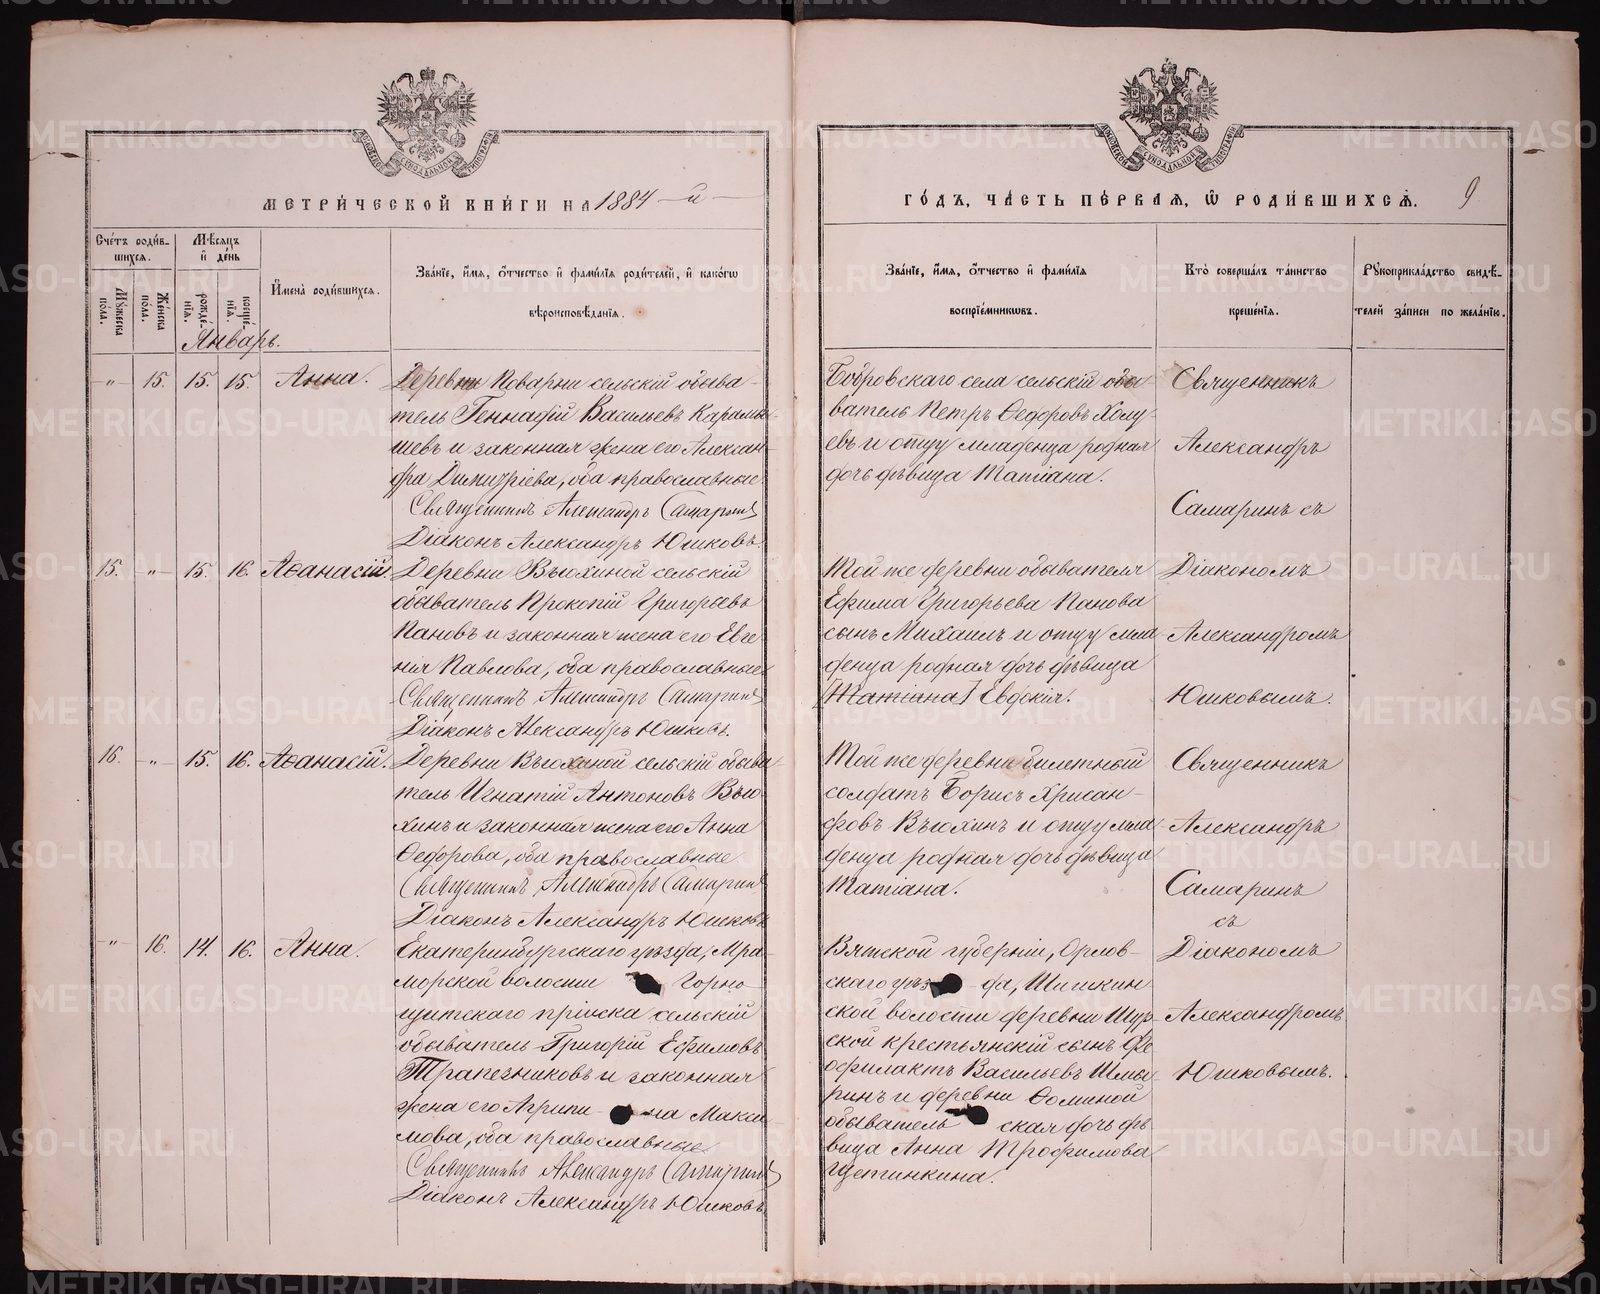 МЕТРИ́ЧЕСКОЙ КНИ́ГИ НА 1884-й
Сче́тъ роди́в-
шихся.
Му́жеска по́ла.
Же́нска по́ла.
Мѣ́сяцъ и҆ де́нь
рожде́нїя.
креще́нїя.
И҆мена̀ роди́вшихся.
Зва́нїе, и҆́мя, ѻ҆́тчество и҆ фами́лїѧ роди́телей, и҆ како́гѡ
вѣроисповѣ́данїѧ.
Январь.
-„- 15. 15. 15. Анна. Деревни Поварни сельскій обыва-
тель Геннадій Васильевъ Карамы-
шевъ и законная жена его Алексан-
дра Димитріева, оба православные
Священникъ Александръ Самаринъ
Діаконъ Александръ Юшковъ.
15. -„- 15. 16. Аѳанасій. Деревни Вьюхиной сельскій
обыватель Прокопій Григорьевъ
Пановъ и законная жена его Евге-
нія Павлова, оба православные.
Священникъ Александръ Самаринъ
Діаконъ Александръ Юшковъ.
16. -„- 15. 16. Аѳанасій. Деревни Вьюхиной сельскій обыва-
тель Игнатій Антоновъ Вью-
хинъ и законная жена его Анна
Ѳедорова, оба православные.
Священникъ Александръ Самаринъ
Діаконъ Александръ Юшковъ
-„- 16. 14. 16. Анна. Екатеринбургскаго уѣзда, Мра-
морской волости Горно-
щитскаго пріиска сельскій
обыватель Григорій Ефимовъ
Трапезниковъ и законная
жена его Агрипи-на Макси-
мова, оба православные.
Священникъ Александръ Самаринъ
Діаконъ Александръ Юшковъ
ГО́ДЪ, ЧА́СТЬ ПЕ́РВАѦ, Ѡ҆ РОДИ́ВШИХСѦ. 9
Зва́нїе, и҆́мя, ѻ҆́тчество и҆ фами́лїѧ
воспрїе́мникѡвъ.
Кто̀ соверша́лъ та́инство
креще́нїѧ.
Рꙋкоприкла́дство свидѣ́-
телей за́писи по жела́нїю.
Бобровскаго села сельскій обы-
ватель Петръ Ѳедоровъ Холу-
евъ и отцу младенца родная
дочь дѣвица Татіана.
Священникъ
Александръ
Самаринъ съ
Той же деревни обывателя
Ефима Григорьева Панова
сынъ Михаилъ и отцу мла-
денца родная дочь дѣвица
[Татіана] Евдокія.
Діакономъ
Александромъ
Юшковымъ.
Той же деревни билетный
солдатъ Борисъ Хрисан-
фовъ Вьюхинъ и отцу мла-
денца родная дочь дѣвица
Татіана.
Священникъ
Александръ
Самаринъ
съ
Вятской губерніи, Орлов-
скаго уѣз-да, Шишкин
ской волости деревни
ской крестьянскій сынъ Фе
офилактъ Васильевъ Шмы-
ринъ и деревни Ѳоминой
обыватель ская дочь дѣ-
вица Анна Трофимова
Щетинкина.
Діакономъ
Александромъ
Юшковымъ.
METRIKI.GASO-URAL.RU